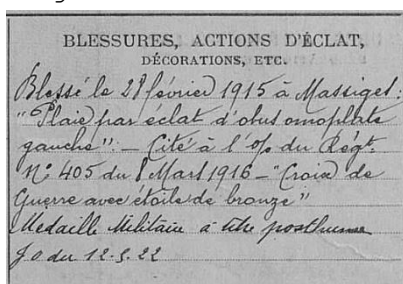 BLESSURES, ACTIONS D'ÉCLAT,
DÉCORATIONS, ETC.
Blessé le 28 février 1915 à Massiges:
"Plaie par éclat d'obus omoplate
gauche". — Cité à l'o/ du Régt.
N° 405 du 8 Mars 1916 — "Croix de
Guerre avec étoile de bronze"
Medaille Militaire à titre posthume
J.O du 12.5.22